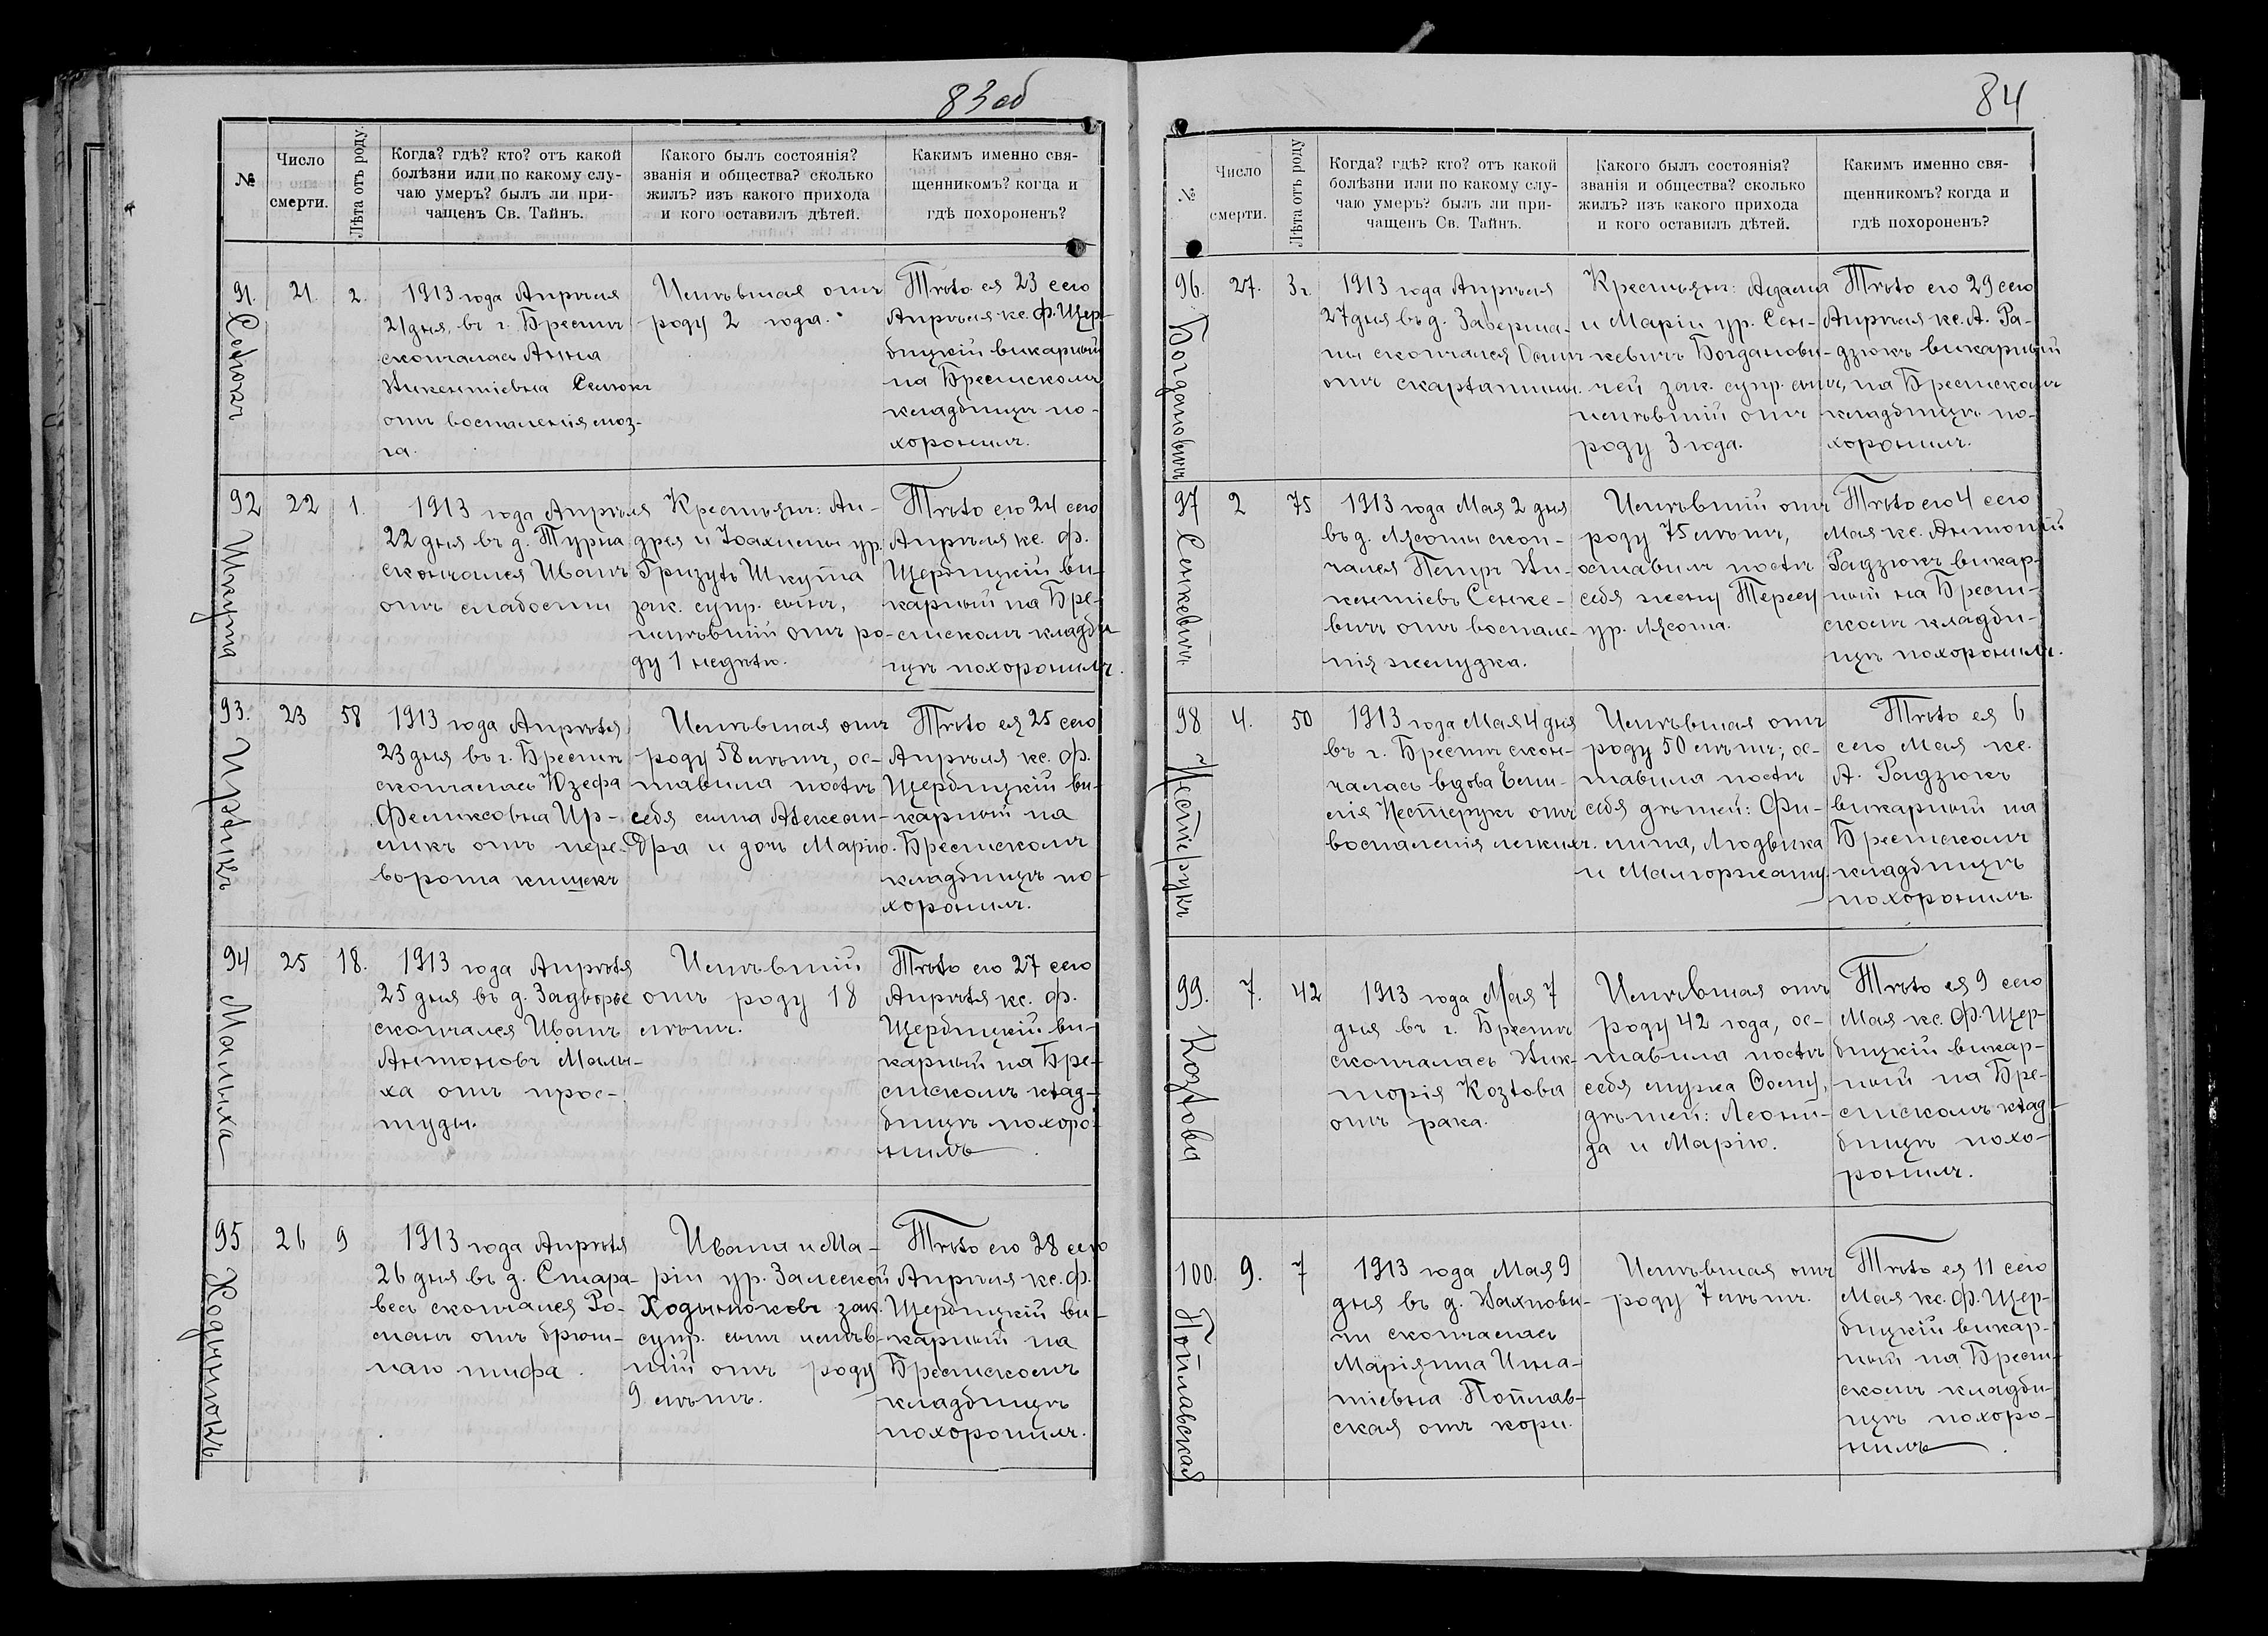 83 об
№
Число
смерти.
Лѣта отъ роду
Когда? гдѣ? кто? отъ какой
болѣзни или по какому слу-
чаю умеръ? былъ ли при-
чащенъ Св. Тайнъ.
Какого былъ состоянія?
званія и общества? сколько
жилъ? изъ какого прихода
и кого оставилъ дѣтей.
Какимъ именно свя-
щенникомъ? когда и
гдѣ похороненъ?
91.
21.
2.
1913 года Апрѣля
21 дня, въ г. Брестѣ
скончалась Анна
Викентіевна Селюкъ
отъ воспаленія моз-
га.
Имѣвшая отъ
роду 2 года.
Тѣло ея 23 сего
Апрѣля кс. Ф. Щер-
бицкій викарный
на Брестскомъ
кладбищѣ по-
хоронилъ.
Селюкъ
92
22
1.
1913 года Апрѣля
22 дня въ д. Турна
скончался Иванъ
отъ слабости
Крестьянъ: Ан-
дрея и Іоахимы ур.
Гризуть Шкута
зак. супр. сынъ,
имѣвшій отъ ро-
ду 1 недѣлю.
Тѣло его 24 сего
Апрѣля кс. Ф.
Щербицкій ви-
карный на Бре-
стскомъ кладби-
щѣ похоронилъ.
Шкута
93.
23
58
1913 года Апрѣля
23 дня въ г. Брестѣ
скончалась Юзефа
Феликсовна Ир-
ликъ отъ пере-
ворота кишекъ
Имѣвшая отъ
роду 58 лѣтъ, ос-
тавила послѣ
себя сына Алексан-
дра и дочь Марію.
Тѣло ея 25 сего
Апрѣля кс. Ф.
Щербицкій ви-
карный на
Брестскомъ
кладбищѣ по-
хоронилъ.
Ирликъ
94
25
18.
1913 года Апрѣля
25 дня въ д. Задворье
скончался Иванъ
Антоновъ Малы-
ха отъ прос-
туды.
Имѣвшій
отъ роду 18
лѣтъ.
Тѣло его 27 сего
Апрѣля кс. Ф.
Щербицкій ви-
карный на Бре-
стскомъ клад-
бищѣ похоро-
нилъ
Малыха
95
26
9
1913 года Апрѣля
26 дня въ д. Стара-
весь скончался Ро-
манъ отъ брюш-
наго тифа.
Ивана и Ма-
ріи ур. Залеской
Ходынюковъ зак.
супр. сынъ имѣв-
шій отъ роду
9 лѣтъ.
Тѣло его 28 сего
Апрѣля кс. Ф.
Щербицкій ви-
карный на
Брестскомъ
кладбищѣ
похоронилъ.
Ходынюкъ
84
№
Число
смерти.
Лѣта отъ роду
Когда? гдѣ? кто? отъ какой
болѣзни или по какому слу-
чаю умеръ? былъ ли при-
чащенъ Св. Тайнъ.
Какого былъ состоянія?
званія и общества? сколько
жилъ? изъ какого прихода
и кого оставилъ дѣтей.
Какимъ именно свя-
щенникомъ? когда и
гдѣ похороненъ?
96.
27.
3 г.
1913 года Апрѣля
27 дня въ д. Заверша-
ны скончался Осипъ
отъ скарлатины.
Крестьянъ: Адама
и Маріи ур. Сен-
кевичъ Богданови-
чей зак. супр. сынъ,
имѣвшій отъ
роду 3 года.
Тѣло его 29 сего
Апрѣля кс. А. Ра-
дзюкъ викарный
на Брестскомъ
кладбищѣ по-
хоронилъ.
Богдановичъ
97
2
75
1913 года Мая 2 дня
въ д. Лясоты скон-
чался Петръ Ви-
кентіевъ Сенке-
вичъ отъ воспале-
нія желудка.
Имѣвшій отъ
роду 75 лѣтъ,
оставилъ послѣ
себя жену Тересу
ур. Лясота.
Тѣло его 4 сего
Мая кс. Антоній
Радзюкъ викар-
ный на Брест-
скомъ кладби-
щѣ похоронилъ.
Сенкевичъ
98
4.
50
1913 года Мая 4 дня
въ г. Брестѣ скон-
чалась вдова Еми-
лія Нестерукъ отъ
воспаленія легкихъ.
Имѣвшая отъ
роду 50 лѣтъ; ос-
тавила послѣ
себя дѣтей: Фи-
липа, Людвика
и Малгоржату.
Тѣло ея 6
сего Мая кс.
А. Радзюкъ
викарный на
Брестскомъ
кладбищѣ
похоронилъ
Нестерукъ
99.
7.
42
1913 года Мая 7
дня въ г. Брестѣ
скончалась Вик-
торія Козлова
отъ рака.
Имѣвшая отъ
роду 42 года, ос-
тавила послѣ
себя мужа Фому,
дѣтей: Леони-
да и Марію.
Тѣло ея 9 сего
Мая кс. Ф. Щер-
бицкій викар-
ный на Бре-
стскомъ клад-
бищѣ похо-
ронилъ.
Козлова
100.
9.
7
1913 года Мая 9
дня въ д. Вахнови-
чи скончалась
Маріянна Игна-
тіевна Поплав-
ская отъ кори.
Имѣвшая отъ
роду 7 лѣтъ.
Тѣло ея 11 сего
Мая кс. Ф. Щер-
бицкій викар-
ный на Брест-
скомъ кладби-
щѣ похоро-
нилъ.
Поплавская